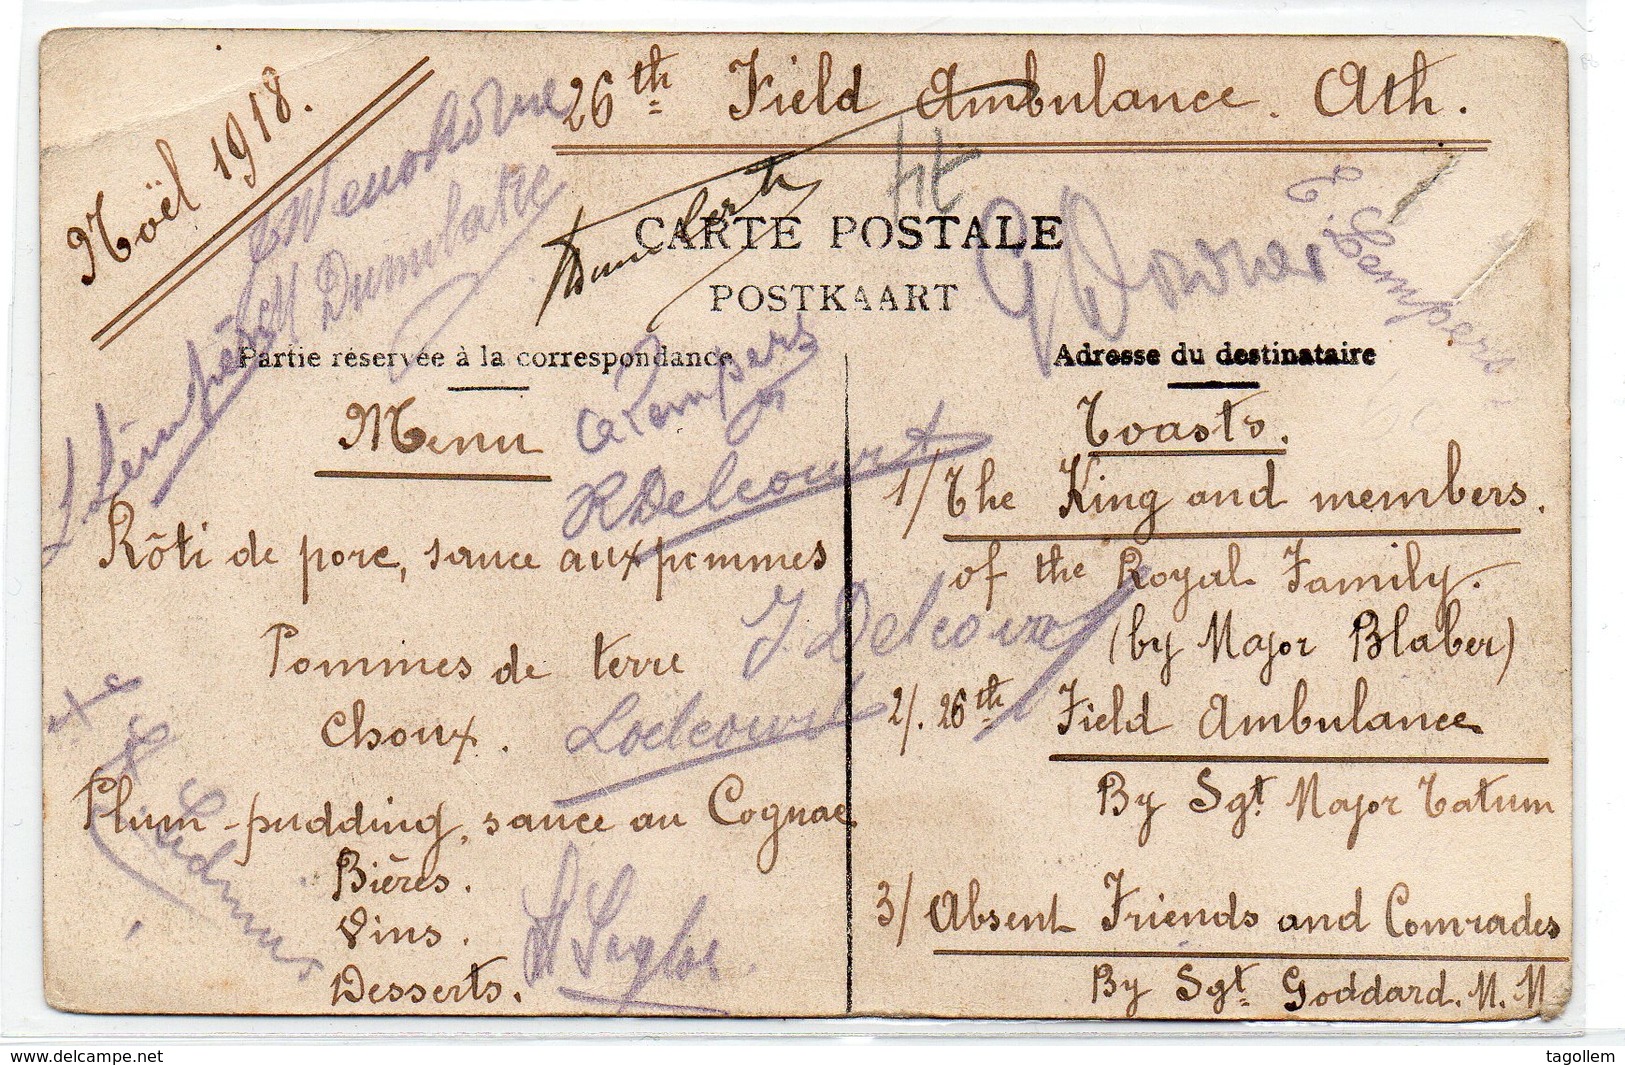 Noël 1918.
26th Field Ambulance. Ath.
CARTE POSTALE
POSTKAART
Partie réservée à la correspondance
Adresse du destinataire
Menu
Rôti de porc, sauce aux pommes
Pommes de terre
choux.
Plum-pudding, sauce au Cognac
Bières.
Vins.
Desserts.
R Delcourt
J. Delcourt
L Delcourt
E. Lempers
Toasts.
1/ The King and members.
of the Royal Family.
(by Major Blaber)
2/. 26th Field Ambulance
By Sgt Major Tatum
3/ Absent Friends and Comrades
By Sgt Goddard. M. M
tagollem